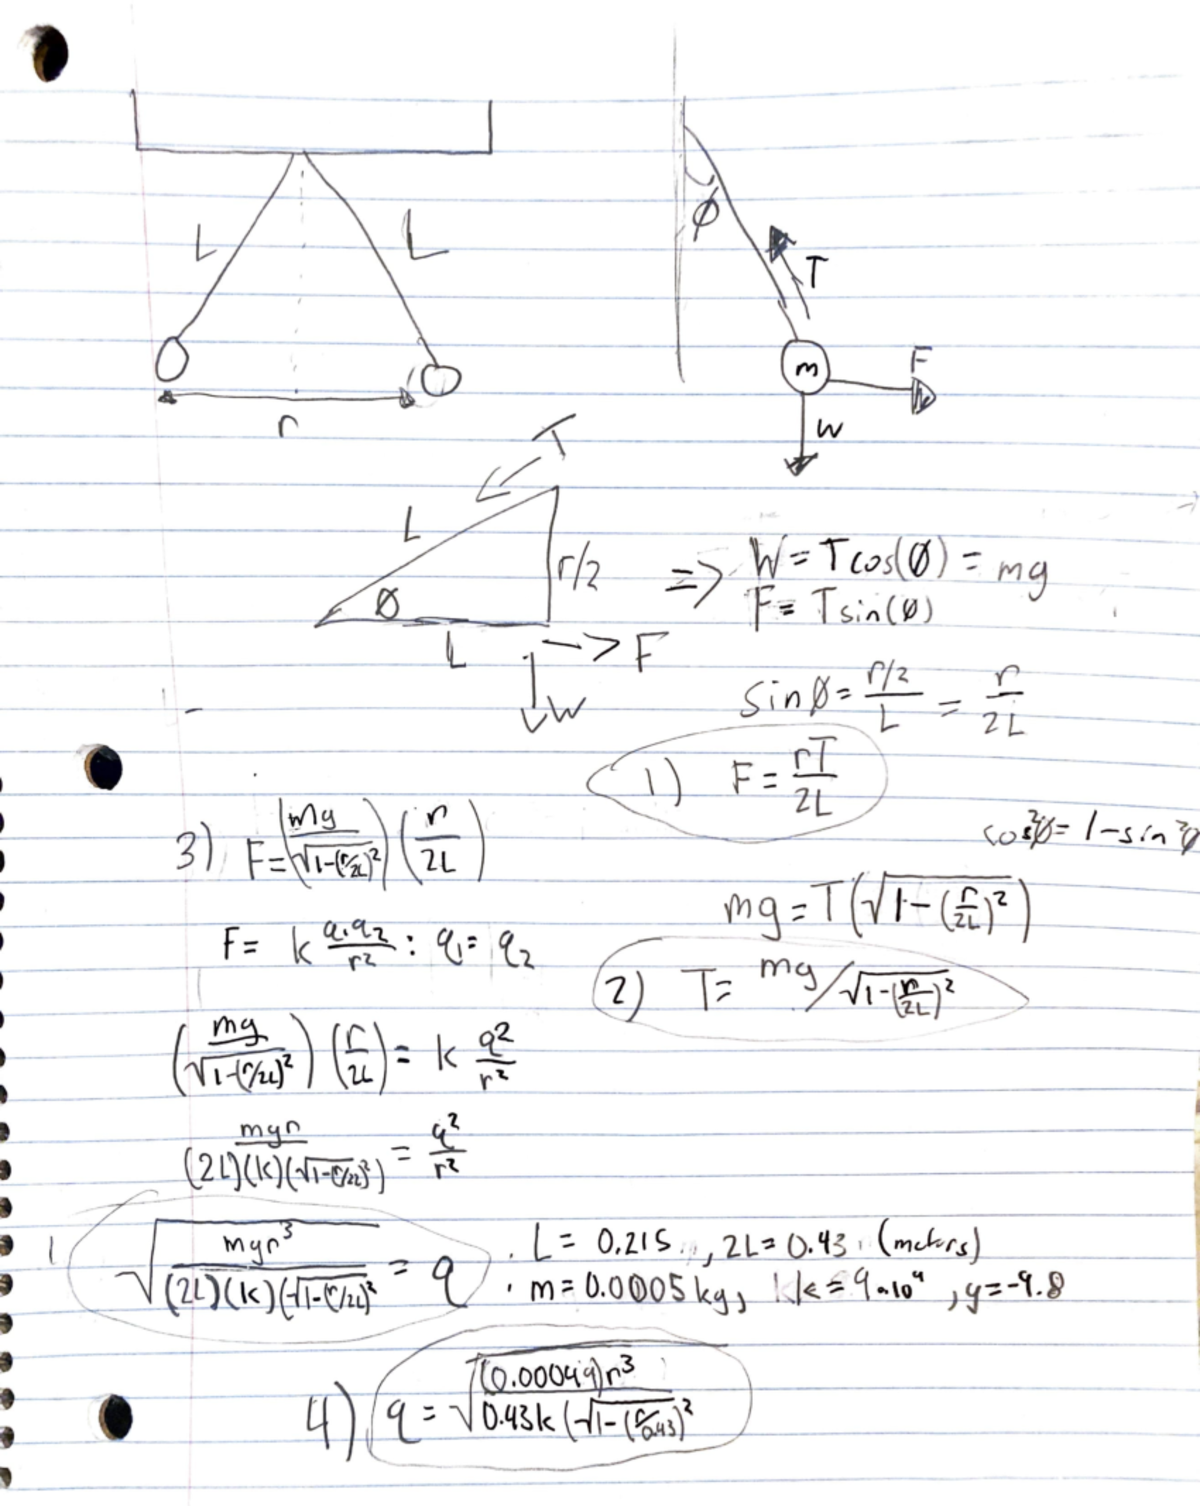 L L
r
φ
T
m
F
W
T
L
r/2
Ø
L
-> F
W
=> W = T cos(Ø) = mg
F = T sin(Ø)
sin Ø = (r/2)/L = r/2L
1) F = rT/2L
cos²Ø = 1 - sin²Ø
mg = T(√(1-(r/2L)²))
2) T = mg/√(1-(r/2L)²)
3) F = (mg/√(1-(r/2L)²)) (r/2L)
F = k q₁q₂/r² : q₁ = q₂
(mg/√(1-(r/2L)²)) (r/2L) = k q²/r²
mgr/((2L)(k)(√(1-(r/2L)²))) = q²/r²
√(mgr³/((2L)(k)(√(1-(r/2L)²)))) = q
· L = 0.215, 2L = 0.43 (meters)
· m = 0.0005 kg, k = 9×10⁹, g = -9.8
4) q = √((0.0049)r³/(0.43k(√(1-(r/0.43)²))))